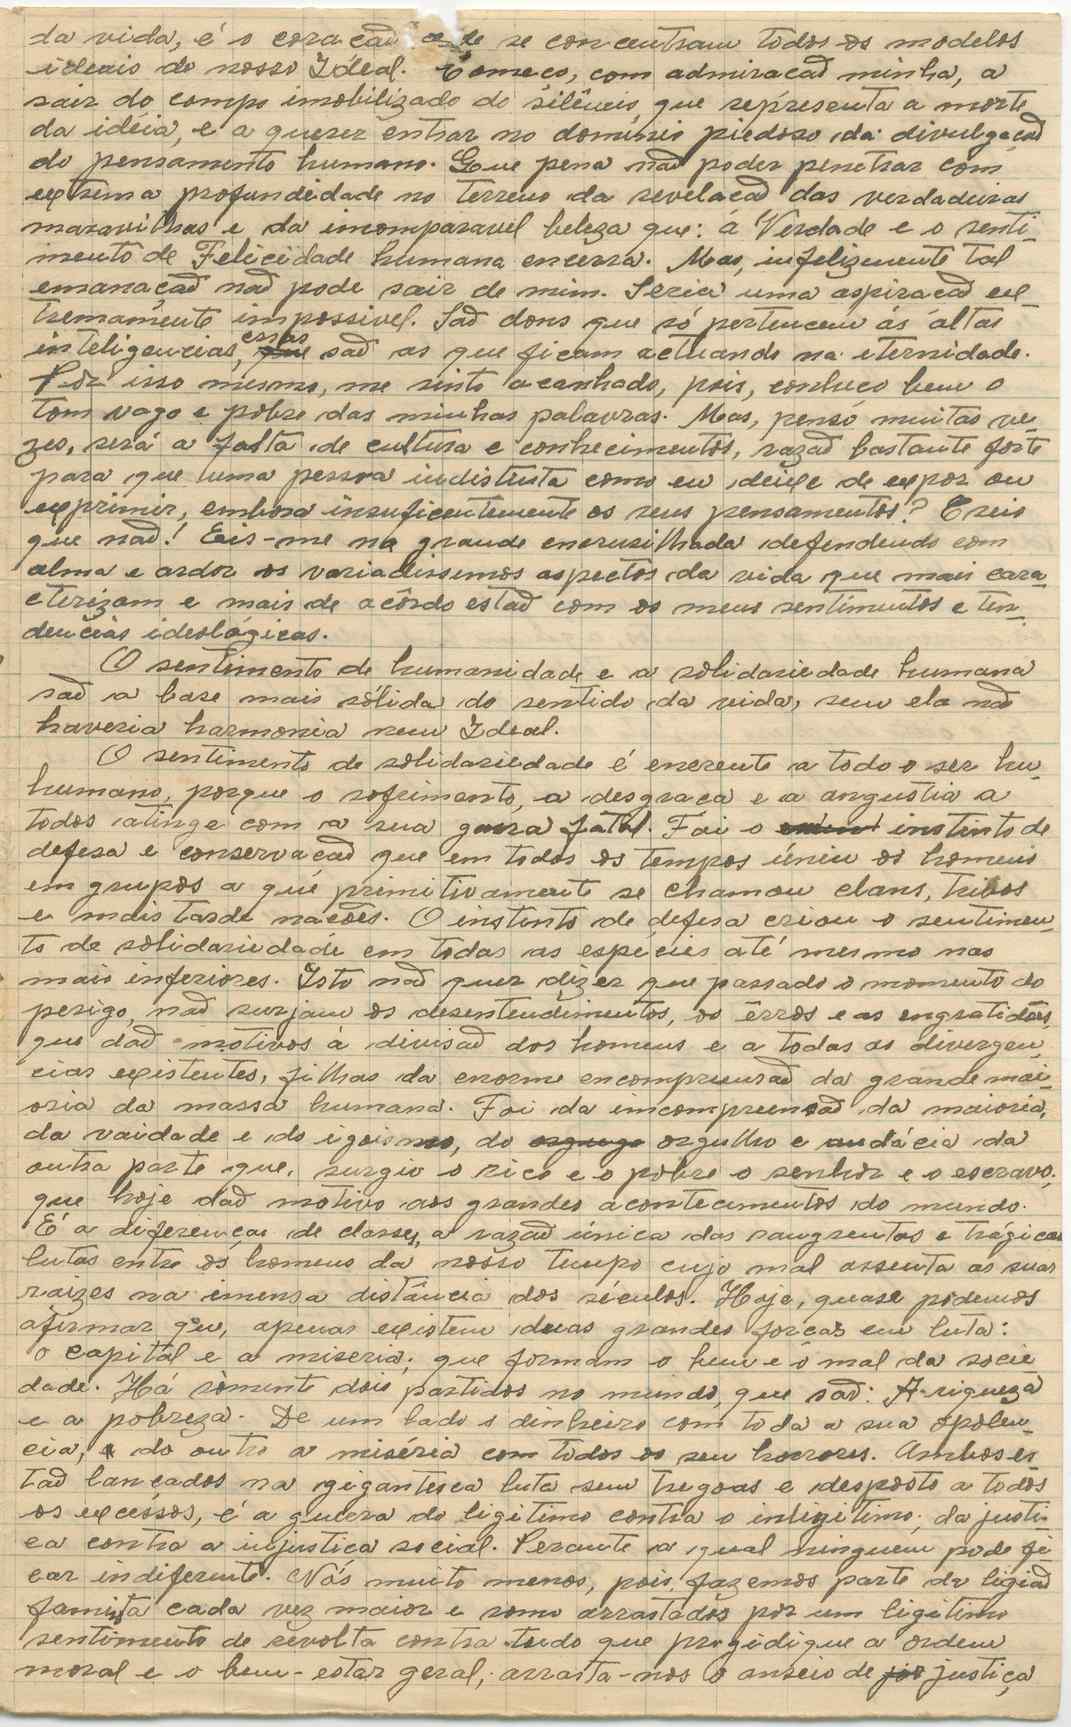 da vida, é o coração onde se concentram todos os modelos
ideais do nosso Ideal. Começo, com admiracaõ minha, a
sair do campo imobilizado do silêncio, que representa a morte
da idéia, e a querer entrar no dominio piedoso da divulgaçaõ
do pensamento humano. Que pena naõ poder penetrar com
extrema profundidade no terreno da revelacaõ das verdadeiras
maravilhas e da imcomparavel beleza que: a Verdade e o senti-
mento de Felicidade humana encerra. Mas, infelizmente tal
emanaçaõ naõ pode sair de mim. Seria uma aspiracaõ ex-
tremamente impossivel. Saõ dons que só pertencem ás altas
inteligencias, essas saõ as que ficam actuando na eternidade.
Por isso mesmo, me sinto acanhado, pois, conheço bem o
tom vago e pobre das minhas palavras. Mas, penso muitas ve-
zes, será a falta de cultura e conhecimentos, razaõ bastante forte
para que uma pessoa indistinta como eu deixe de expor ou
exprimir, embora insuficentemente os seus pensamentos? Creio
que naõ! Eis-me na grande encrusilhada defendendo com
alma e ardor os variadissemos aspectos da vida que mais cara-
cterizam e mais de acôrdo estaõ com os meus sentimentos e ten-
dencias ideológicas.
O sentimento de humanidade e a solidariedade humana
saõ a base mais sólida do sentido da vida, sem ela naõ
haveria harmonia nem Ideal.
O sentimento de solidariedade é enerente a todo o ser hu-
humano, porque o sofrimento, a desgraca e a angustia a
todos atinge com a sua garra fatal. Foi o instinto de
defesa e conservacaõ que em todos os tempos úniu os homens
em grupos a que primitivamente se chamou clans, tribos
e mais tarde nações. O instinto de defesa criou o sentimen-
to de solidariedade em todas as especies até mesmo nas
mais inferiores. Isto naõ quer dizer que passado o momento do
perigo, naõ surjam os desentendimentos, os êrros e as engratidões,
que daõ motivos à divisaõ dos homens e a todas as divergen-
cias existentes, filhas da enorme encompreensaõ da grande mai-
oria da massa humana. Foi da imcompreensaõ da maioria,
da vaidade e do igoismo, do orgulho e audácia da
outra parte que, surgio o rico e o pobre o senhor e o escravo,
que hoje daõ motivo aos grandes acontecimentos do mundo.
É a diferenças de classes, a razaõ única das sangrentas e trágicas
lutas entre os homens da nosso tempo cujo mal assenta as suas
raizes na imensa distância dos séculos. Hoje, quase podemos
afirmar que, apenas existem duas grandes forças em luta:
o capital e a miseria, que formam o bem e o mal da socie
dade. Há sòmente dois partidos no mundo, que saõ: A riqueza
e a pobreza. De um lado o dinheiro com toda a sua opolen-
cia, do outro a miséria com todos os seu horrores. Ambos es-
taõ lançados na gigantesca luta sem treguas e desposto a todos
os excessos, é a guerra do ligitimo contra o inligitimo, da justi-
ca contra a injustica social. Perante a qual ninguem pode fi
car indiferente. Nós muito menos, pois, fazemos parte da ligiaõ
faminta cada vez maior e somo arrastados por um ligitimo
sentimento de revolta contra tudo que projidique a ordem
moral e o bem-estar geral, arrasta-nos o anseio de justiça